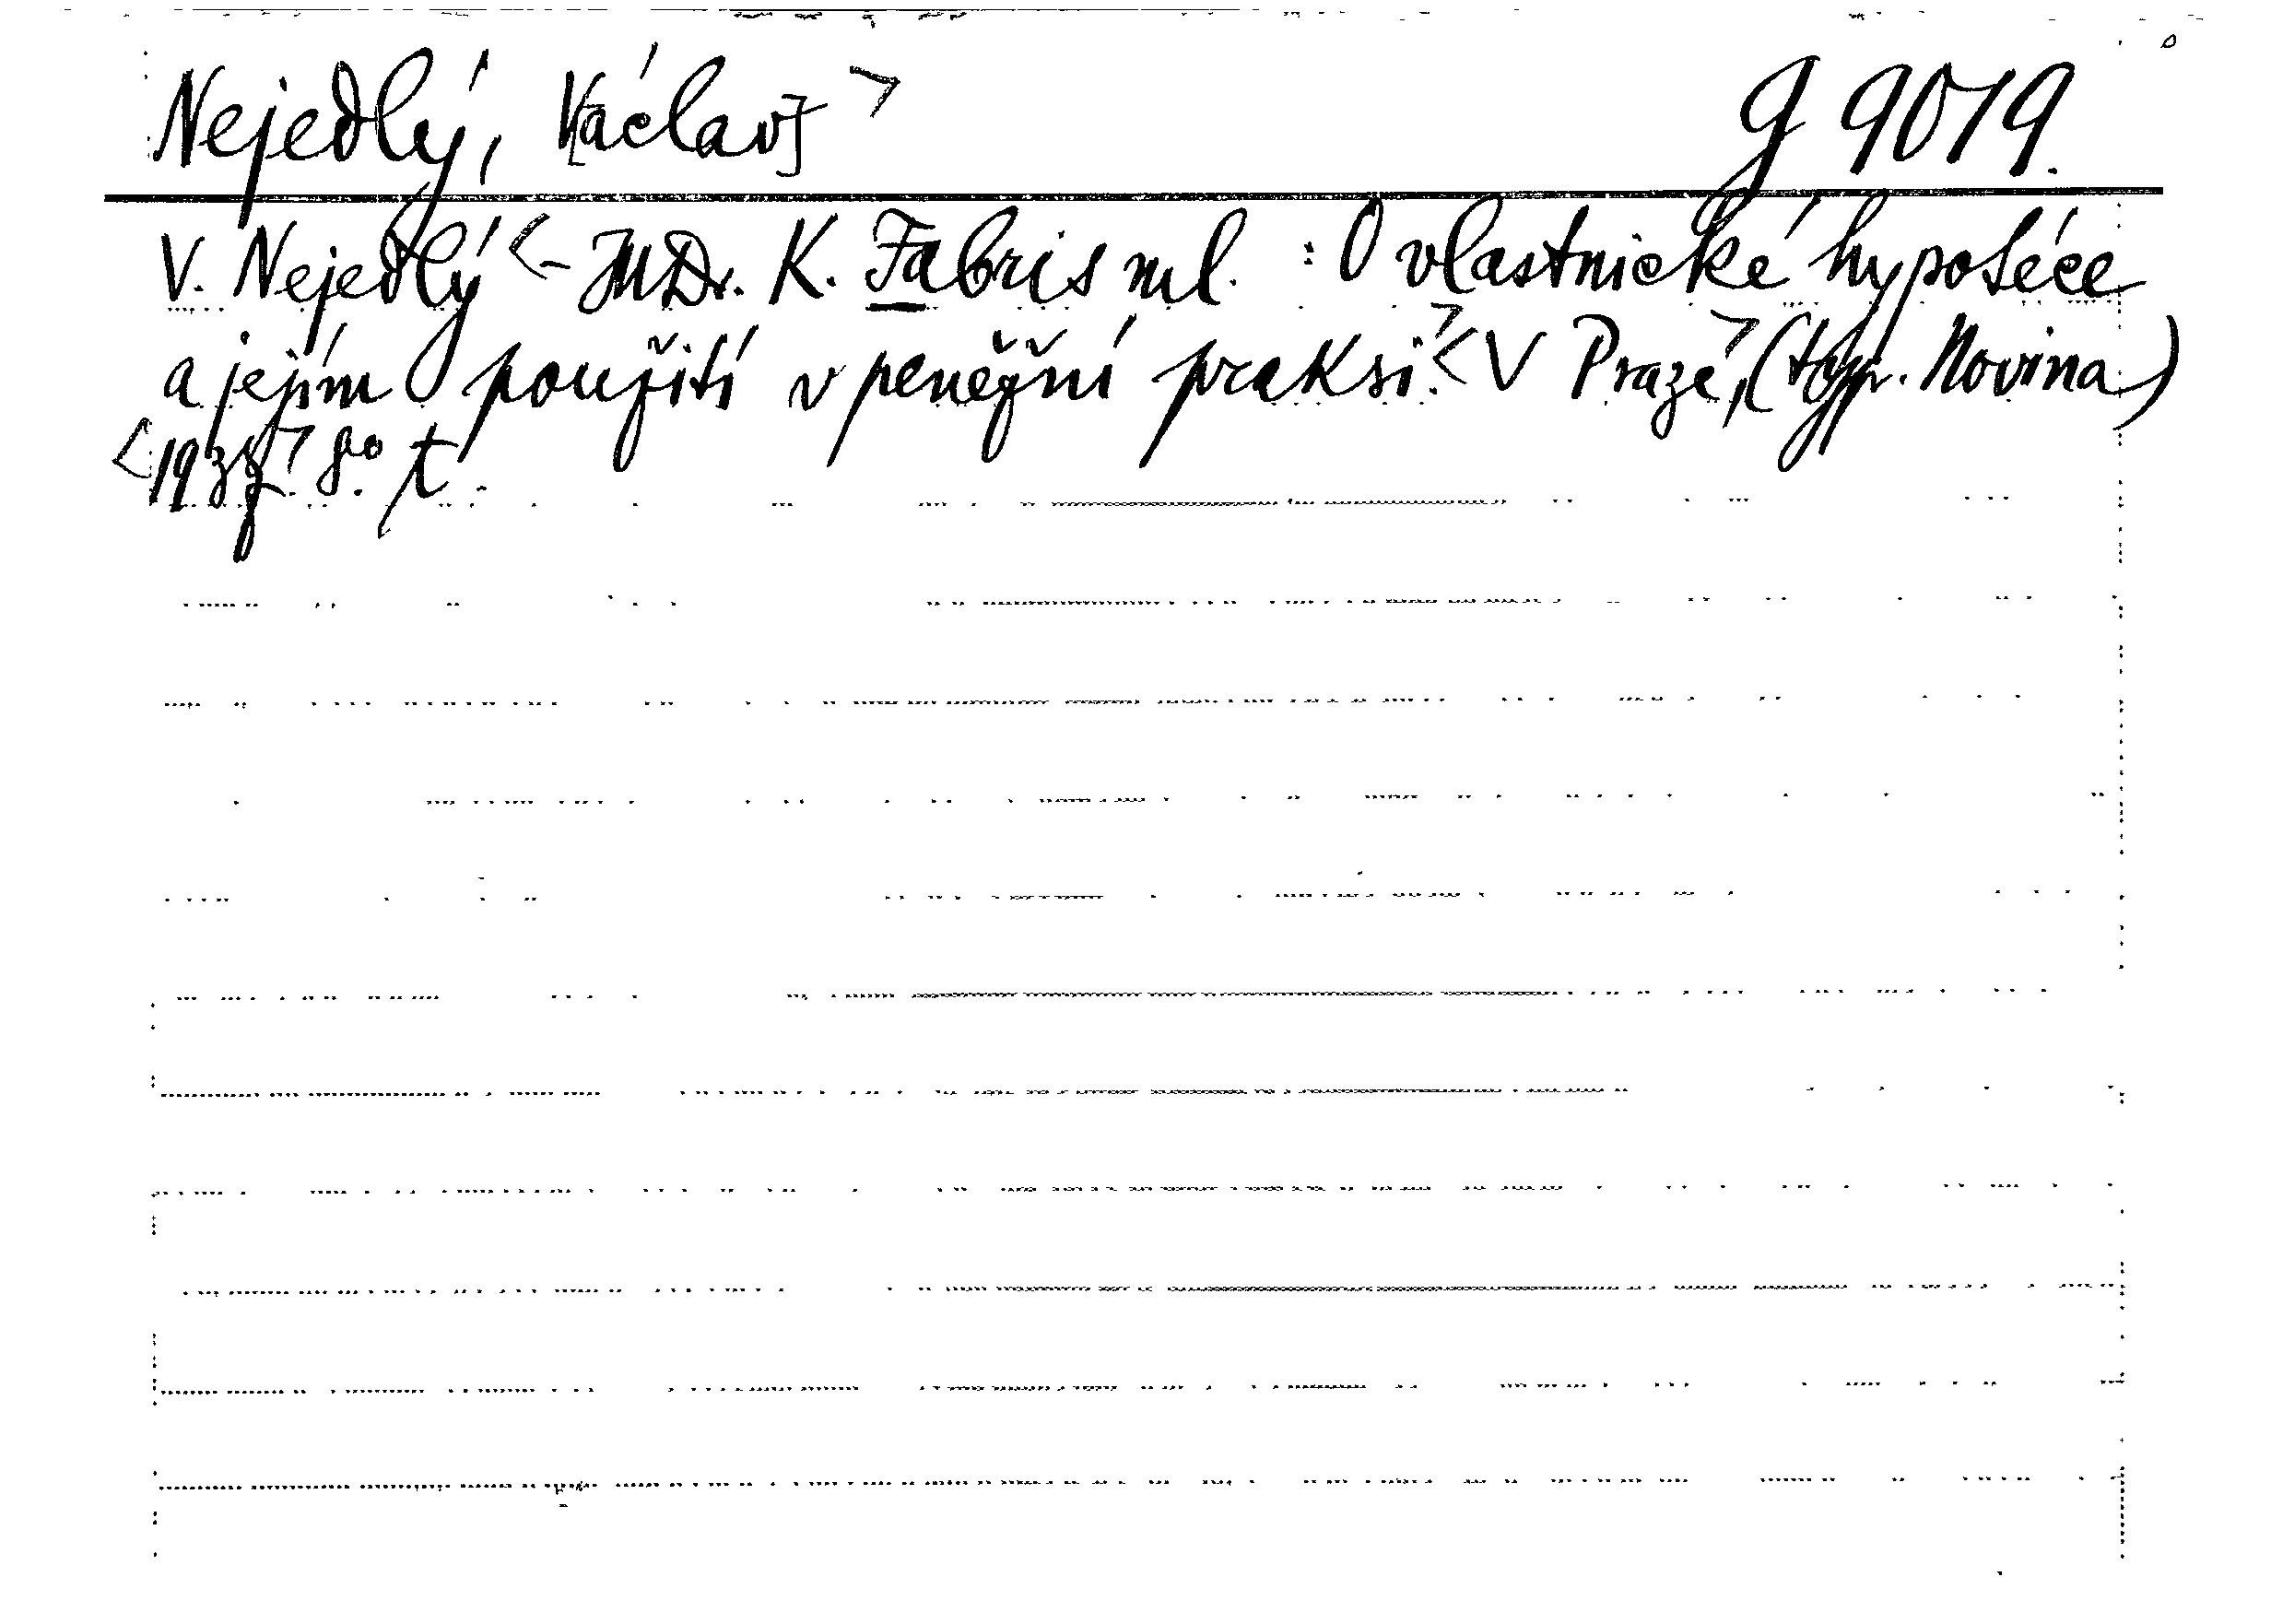 Nejedlý, V[áclav] > g 9019.
V. Nejedlý <- JUDr. K. Fabris ml. : O vlastnické hypotéce
a jejím použití v peněžní praksi. > < V Praze, > (typ. Novina)
< 8° t.